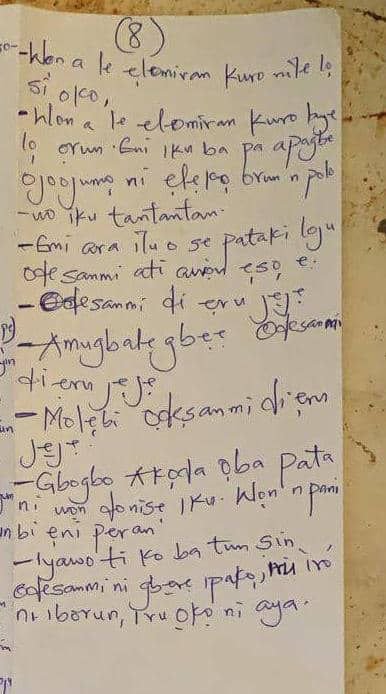 (8)
-Won a le ẹlomiran kuro nile lọ
si oko,
-Won a le elomiran kuro laye
lọ orun. Eni iku ba pa apagbe
Ojoojumọ ni elekọ ọrun n polo
-wo iku tantantan.
-Emi ara ilu o se pataki loju
Odesanmi ati awon ẹsọ ẹ.
-Odesanmi di eru jẹjẹ
-Amugbalẹgbẹẹ Odesanmi
di eru jẹjẹ
-Molẹbi Odẹsanmi di ẹru
Jẹjẹ.
-Gbogbo Akọda ọba pata
ni won donise iku. Won n pani
bi ẹni peran
-Iyawo ti ko ba tun sin
Odesanmi ni gbere ipakọ, iró
ni iborun, Iru Oko ni aya.